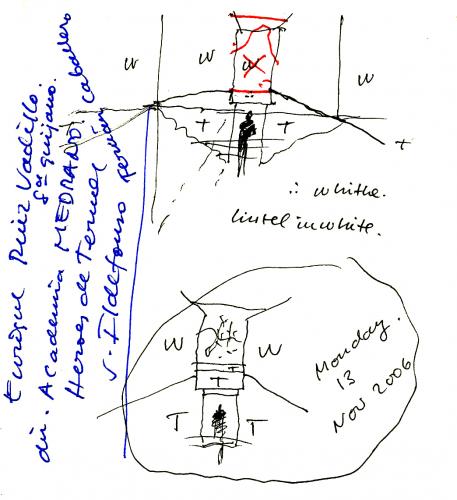 Enrique Ruiz Vadillo.
Sor quijano.
dir. Academia MEDRANO. Caballero
Heroes de Teruel
S. Ildefonso
W
W
W
W
T
T
T
∴ white.
lintel in white.
W
W
T
T
T
Monday.
13
NOV 2006